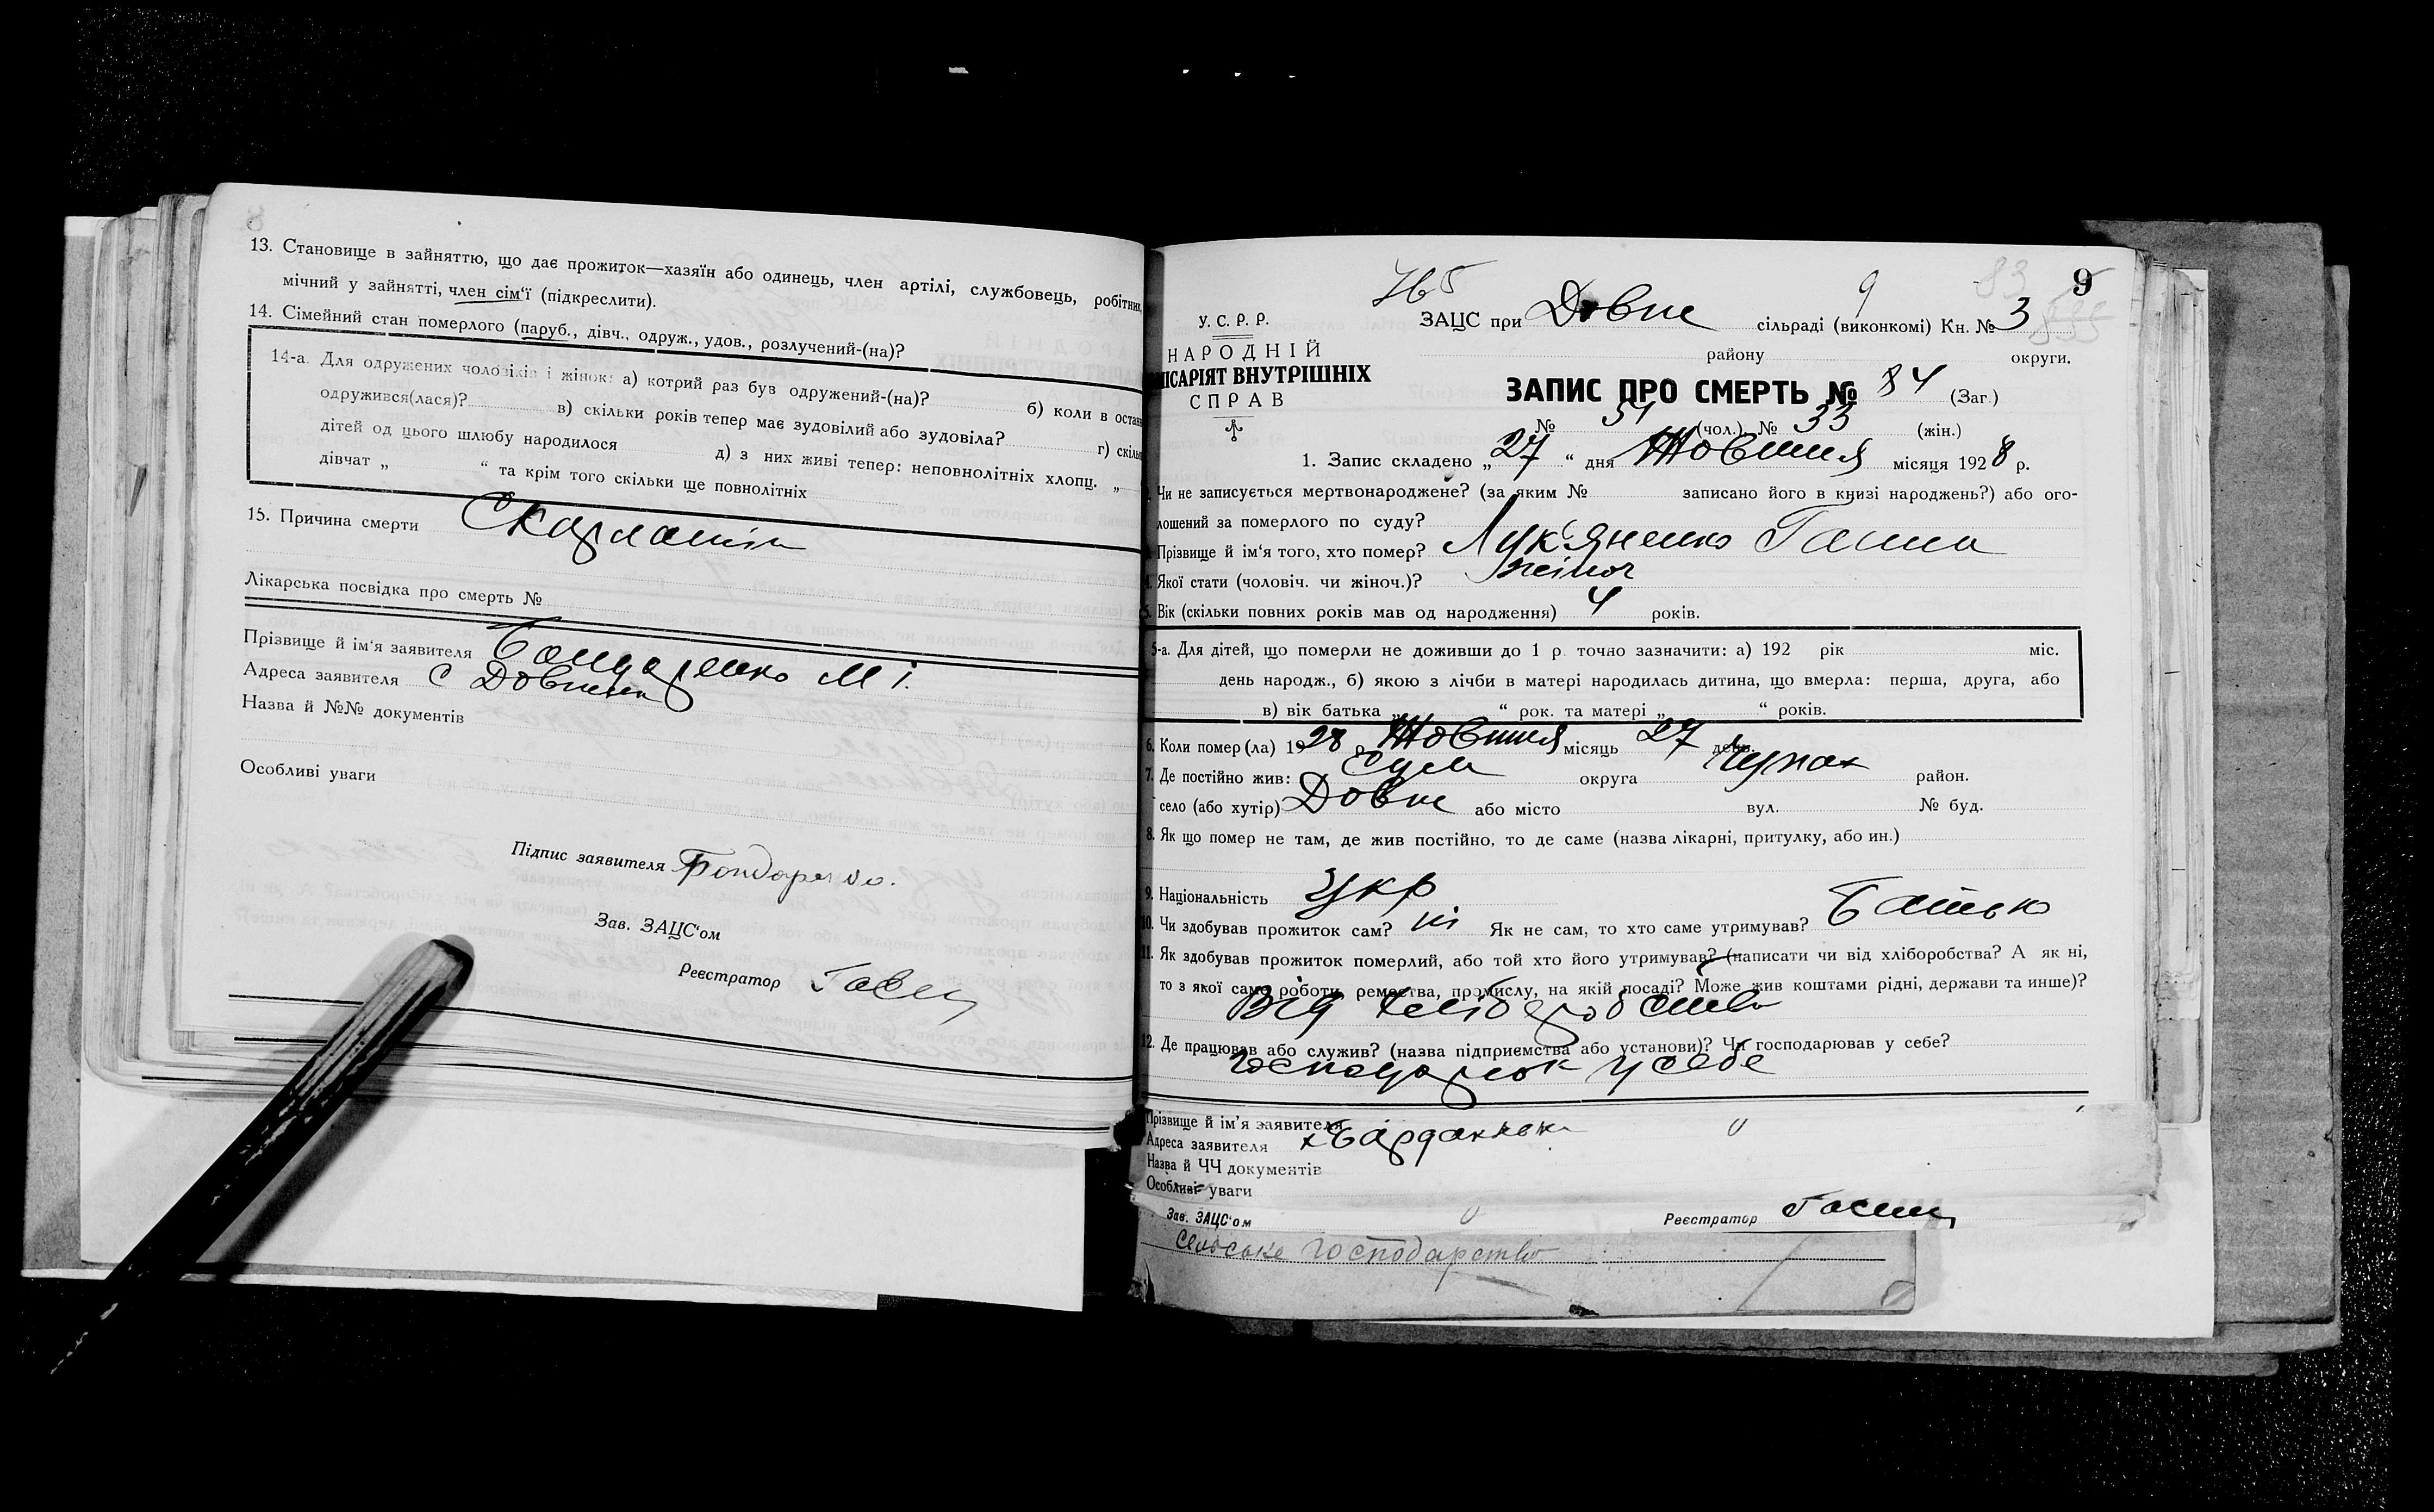 8
13. Становище в зайняттю, що дає прожиток—хазяїн або одинець, член артілі, службовець, робітник,
мічний у зайнятті, член сім'ї (підкреслити).
14. Сімейний стан померлого (паруб., дівч., одруж., удов., розлучений-(на)?
14-а. Для одружених чоловіків і жінок: а) котрий раз був одружений-(на)? б) коли в остан
одружився(лася)? в) скільки років тепер має зудовілий або зудовіла? г) скіль
дітей од цього шлюбу народилося д) з них живі тепер: неповнолітніх хлопц. „
дівчат „ “ та крім того скільки ще повнолітніх
15. Причина смерти Скарлатін
Лікарська посвідка про смерть №
Прізвище й ім'я заявителя Бондаренко М І.
Адреса заявителя С Довне
Назва й №№ документів
Особливі уваги
Підпис заявителя Бондаренко.
Зав. ЗАЦС'ом
Реєстратор
765 9 83 9
У. С. Р. Р.
НАРОДНІЙ
ІСАРІЯТ ВНУТРІШНІХ
СПРАВ
ЗАЦС при Довне сільраді (виконкомі) Кн. № 3
району округи.
ЗАПИС ПРО СМЕРТЬ № 84 (Заг.)
№ 51 (чол.) № 33 (жін.)
1. Запис складено „27“ дня Жовтня місяця 1928 р.
Чи не записується мертвонароджене? (за яким № записано його в книзі народжень?) або ого-
лошений за померлого по суду?
Прізвище й ім'я того, хто помер? Лук'яненко Ганна
Якої стати (чоловіч. чи жіноч.)? жіноч
5. Вік (скільки повних років мав од народження) 4 років.
5-а. Для дітей, що померли не доживши до 1 р. точно зазначити: а) 192 рік міс.
день народж., б) якою з лічби в матері народилась дитина, що вмерла: перша, друга, або
в) вік батька „ “ рок. та матері „ “ років.
6. Коли помер (ла) 1928 р. Жовтня місяць 27 день.
7. Де постійно жив: Сум округа Чупах район.
село (або хутір) Довне або місто вул. № буд.
8. Як що помер не там, де жив постійно, то де саме (назва лікарні, притулку, або ин.)
9. Національність Укр
10. Чи здобував прожиток сам? ні Як не сам, то хто саме утримував? Батько
11. Як здобував прожиток померлий, або той хто його утримував? (написати чи від хліборобства? А як ні,
то з якої саме роботи, ремества, промислу, на якій посаді? Може жив коштами рідні, держави та инше)?
Від хліборобства
12. Де працював або служив? (назва підприємства або установи)? Чи господарював у себе?
господарюв у себе
Прізвище й ім'я заявителя
Адреса заявителя
Назва й ЧЧ документів
Особливі уваги
Зав. ЗАЦС'ом Реєстратор
сельське господарство